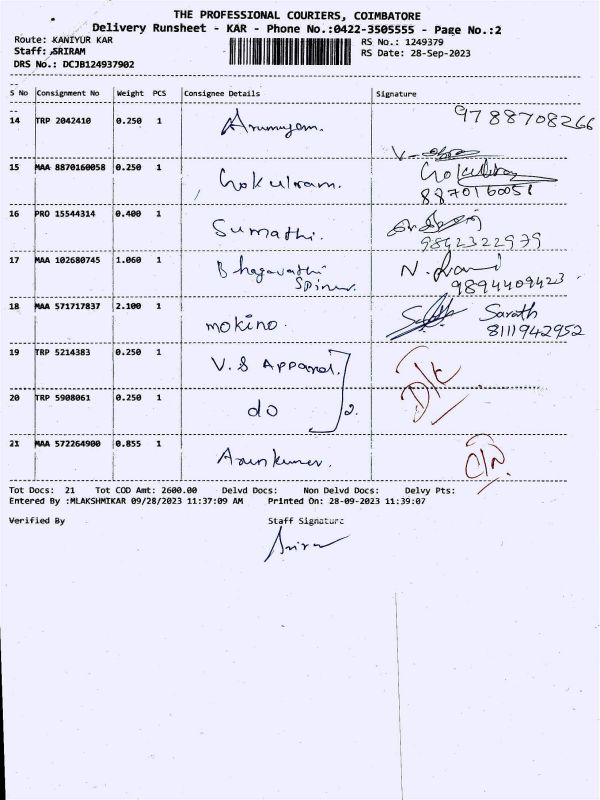 THE PROFESSIONAL COURIERS, COIMBATORE
Delivery Runsheet - KAR - Phone No.:0422-3505555 - Page No.:2
Route: KANIYUR KAR RS No.: 1249379
Staff: SRIRAM RS Date: 28-Sep-2023
DRS No.: DCJB124937902
S No Consignment No Weight PCS Consignee Details Signature
14 TRP 2042410 0.250 1 Arumugam. 9788708266
15 MAA 8870160058 0.250 1 Gokulram. Gokulram
8870160058
16 PRO 15544314 0.400 1 Sumathi.
9842322979
17 MAA 102680745 1.060 1 Bhagavathi N.
Spiner 9894409423
18 MAA 571717837 2.100 1 mokino. Sarath
8111942952
19 TRP 5214383 0.250 1 V.S Apparel. D/L
20 TRP 5908061 0.250 1 do 2.
21 MAA 572264900 0.855 1 Arunkumar. C/N
Tot Docs: 21 Tot COD Amt: 2600.00 Delvd Docs: Non Delvd Docs: Delvy Pts:
Entered By :MLAKSHMIKAR 09/28/2023 11:37:09 AM Printed On: 28-09-2023 11:39:07
Verified By Staff Signature
Sriram